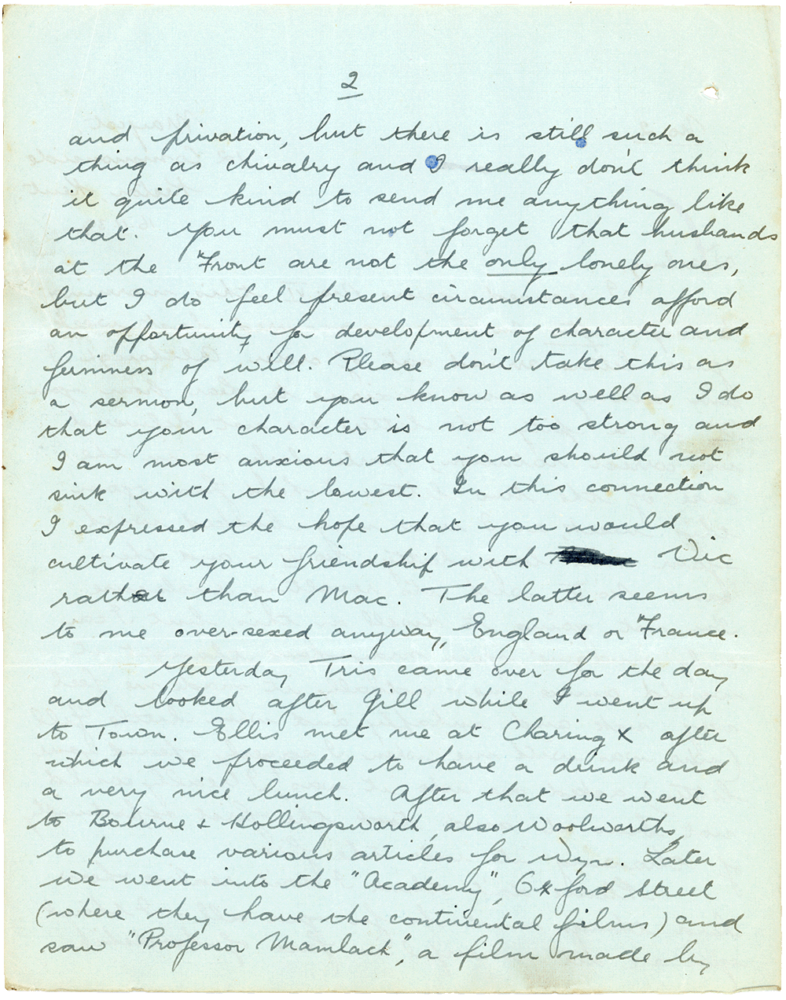 2
and privation, but there is still such a
thing as chivalry and I really don't think
it quite kind to send me anything like
that. You must not forget that husbands
at the Front are not the only lonely ones,
but I do feel present circumstances afford
an opportunity for development of character and
firmness of will. Please don't take this as
a sermon, but you know as well as I do
that your character is not too strong and
I am most anxious that you should not
sink with the lowest. In this connection
I expressed the hope that you would
cultivate your friendship with Vic
rather than Mac. The latter seems
to me over-sexed anyway, England or France.
Yesterday Tris came over for the day
and looked after Gill while I went up
to Town. Ellis met me at Charing X after
which we proceeded to have a drink and
a very nice lunch. After that we went
to Bourne & Hollingsworth, also Woolworths,
to purchase various articles for Wyn. Later
we went into the "Academy", Oxford Street
(where they have the continental films) and
saw "Professor Mamlack", a film made by